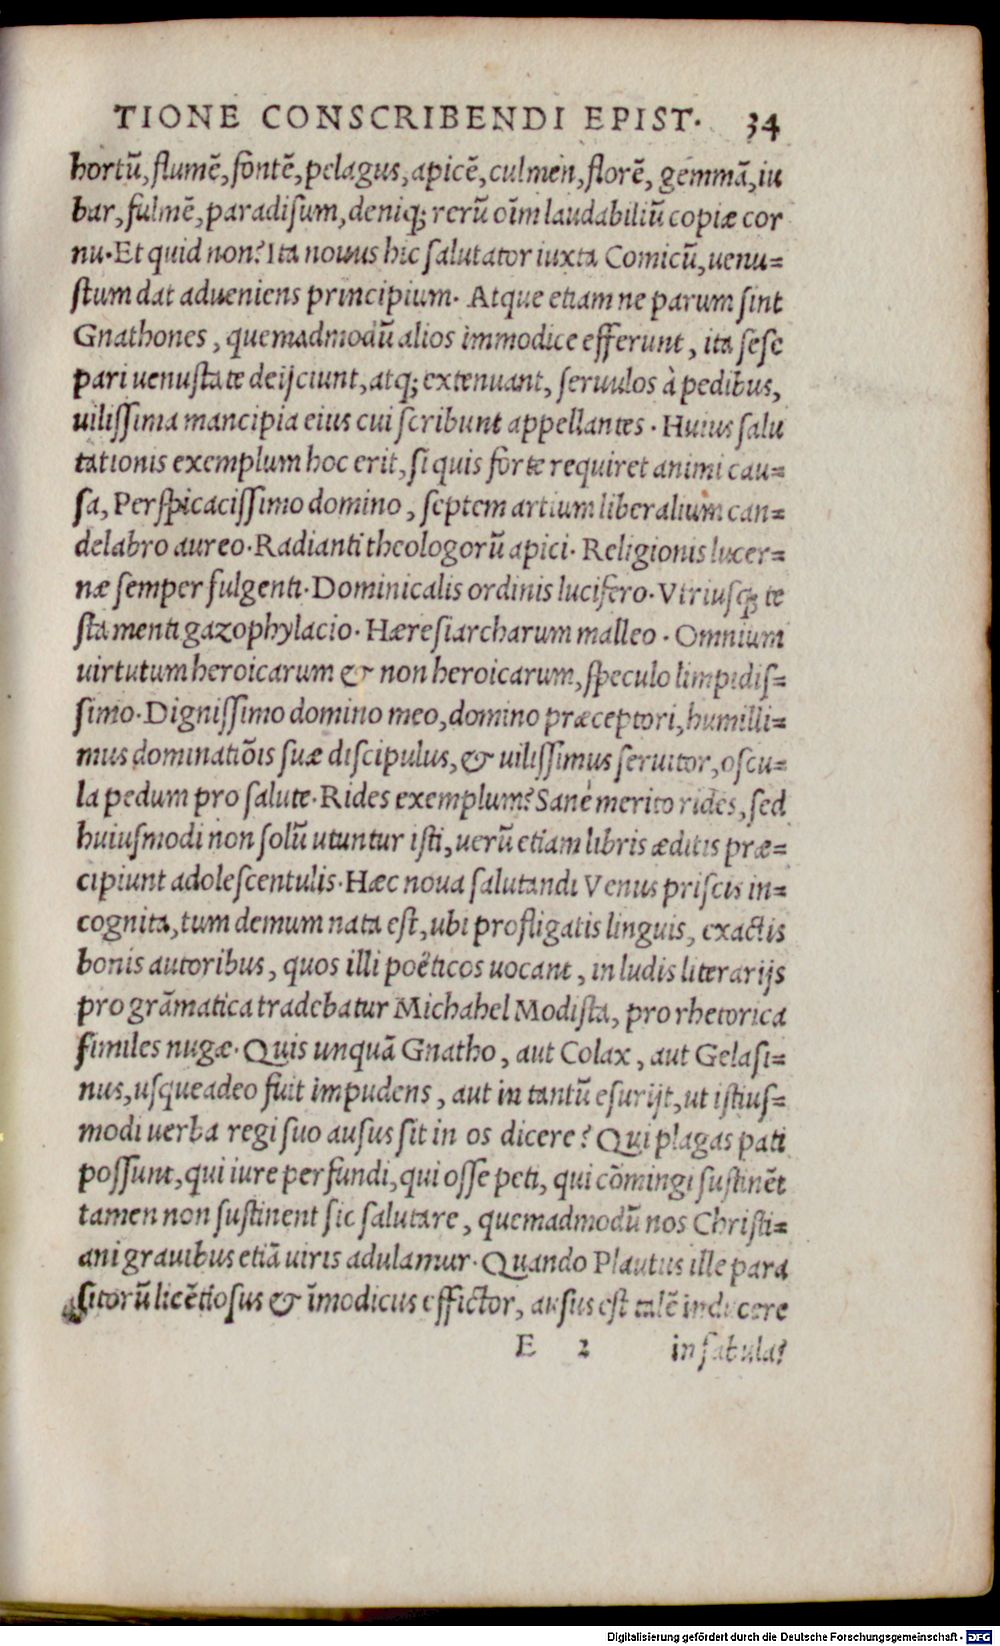 TIONE CONSCRIBENDI EPIST. 34
hortū, flumē, fontē, pelagus, apicē, culmen, florē, gemmā, iu
bar, fulmē, paradisum, deniq; rerū oīm laudabiliū copiæ cor
nu. Et quid non? Ita nouus hic salutator iuxta Comicū, uenu=
stum dat adueniens principium. Atque etiam ne parum sint
Gnathones, quemadmodū alios immodice efferunt, ita sese
pari uenustate deijciunt, atq; extenuant, seruulos à pedibus,
uilissima mancipia eius cui scribunt appellantes. Huius salu
tationis exemplum hoc erit, si quis forte requiret animi cau=
sa, Perspicacissimo domino, septem artium liberalium can=
delabro aureo. Radianti theologorū apici. Religionis lucer=
næ semper fulgenti. Dominicalis ordinis lucifero. Vtriusq; te
stamenti gazophylacio. Hæresiarcharum malleo. Omnium
uirtutum heroicarum & non heroicarum, speculo limpidis=
simo. Dignissimo domino meo, domino præceptori, humilli=
mus dominatiõis suæ discipulus, & uilissimus seruitor, oscu=
la pedum pro salute. Rides exemplum? Sanè merito rides, sed
huiusmodi non solū utuntur isti, uerū etiam libris æditis præ=
cipiunt adolescentulis. Hæc noua salutandi Venus priscis in=
cognita, tum demum nata est, ubi profligatis linguis, exactis
bonis autoribus, quos illi poëticos uocant, in ludis literarijs
pro grāmatica tradebatur Michahel Modista, pro rhetorica
similes nugæ. Quis unquā Gnatho, aut Colax, aut Gelasi=
nus, usqueadeo fuit impudens, aut in tantū esurijt, ut istius=
modi uerba regi suo ausus sit in os dicere? Qui plagas pati
possunt, qui iure perfundi, qui osse peti, qui cõmingi sustinēt
tamen non sustinent sic salutare, quemadmodū nos Christi=
ani grauibus etiā uiris adulamur. Quando Plautus ille para
sitorū licētiosus & īmodicus effictor, ausus est talē inducere
E 2 in fabula?
Digitalisierung gefördert durch die Deutsche Forschungsgemeinschaft - DFG